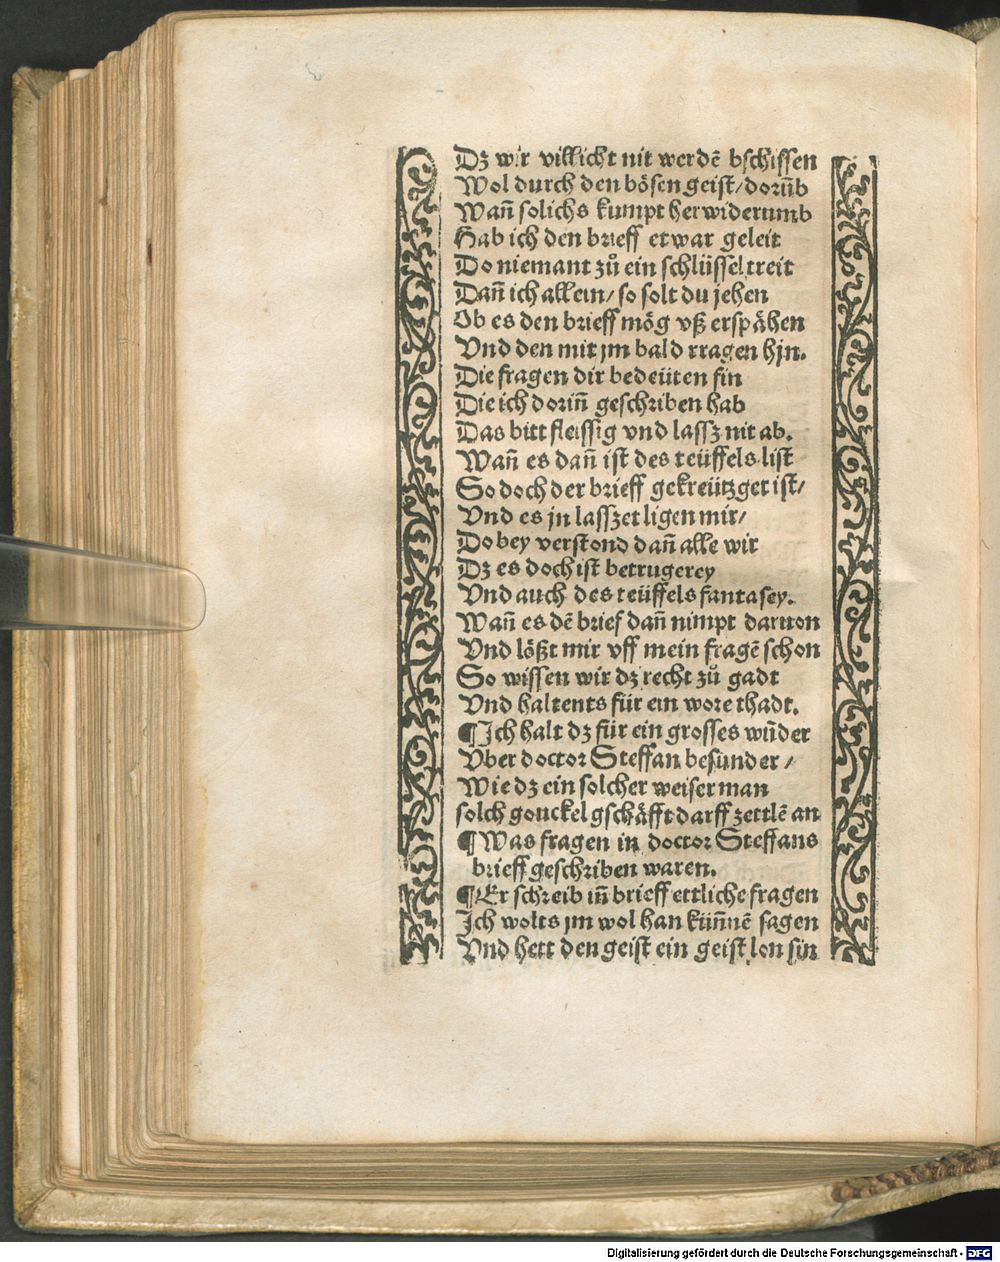 Dz wir villicht nit werdē bschissen
Wol durch den bösen geist/ dorūb
Wañ solichs kumpt herwiderumb
Hab ich den brieff etwar geleit
Do niemant zů ein schlüssel treit
Dañ ich allein/ so solt du jehen
Ob es den brieff mög vß erspähen
Vnd den mit jm bald tragen hjn.
Die fragen dir bedeüten sin
Die ich doriñ geschriben hab
Das bitt fleissig vnd lassz nit ab.
Wañ es dañ ist des teüffels list
So doch der brieff gekreützget ist/
Vnd es jn lasszet ligen mir/
Dobey verstond dañ alle wir
Dz es doch ist betrugerey
Vnd auch des teüffels fantasey.
Wañ es dē brief dañ nimpt daruon
Vnd lößt mir vff mein fragē schon
So wissen wir dz recht zů gadt
Vnd haltents für ein wore thadt.
¶ Jch halt dz für ein grosses wūder
Vber doctor Steffan besunder /
Wie dz ein solcher weiser man
solch gouckel gschäfft darff zettlē an
¶ Was fragen in doctor Steffans
brieff geschriben waren.
¶ Er schreib iñ brieff ettliche fragen
Jch wolts jm wol han küñnē sagen
Vnd hett den geist ein geist lon sin
Digitalisierung gefördert durch die Deutsche Forschungsgemeinschaft - DFG